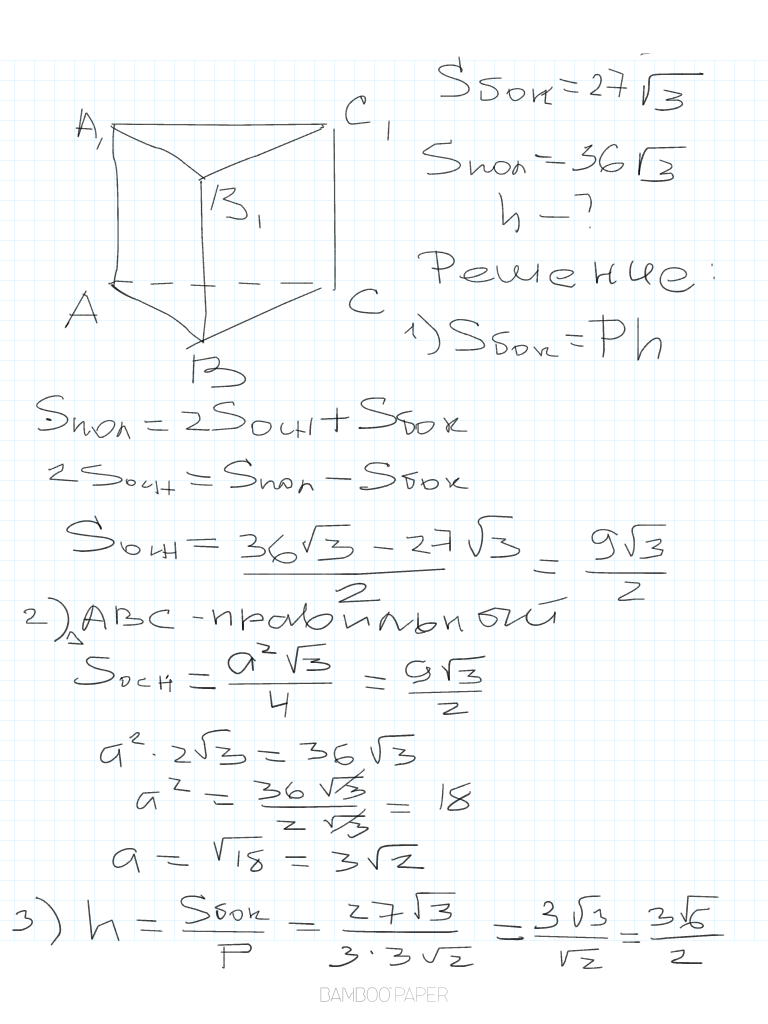 Sбок = 27√3
A₁ C₁
Sпол = 36√3
B₁
h – ?
Решение:
A C
1) Sбок = Ph
B
Sпол = 2Sосн + Sбок
2Sосн = Sпол – Sбок
Sосн = (36√3 – 27√3)/2 = 9√3/2
2) △ABC - правильный
Sосн = a²√3/4 = 9√3/2
a² · 2√3 = 36√3
a² = 36√3/2√3 = 18
a = √18 = 3√2
3) h = Sбок/P = 27√3/(3·3√2) = 3√3/√2 = 3√6/2
BAMBOO PAPER